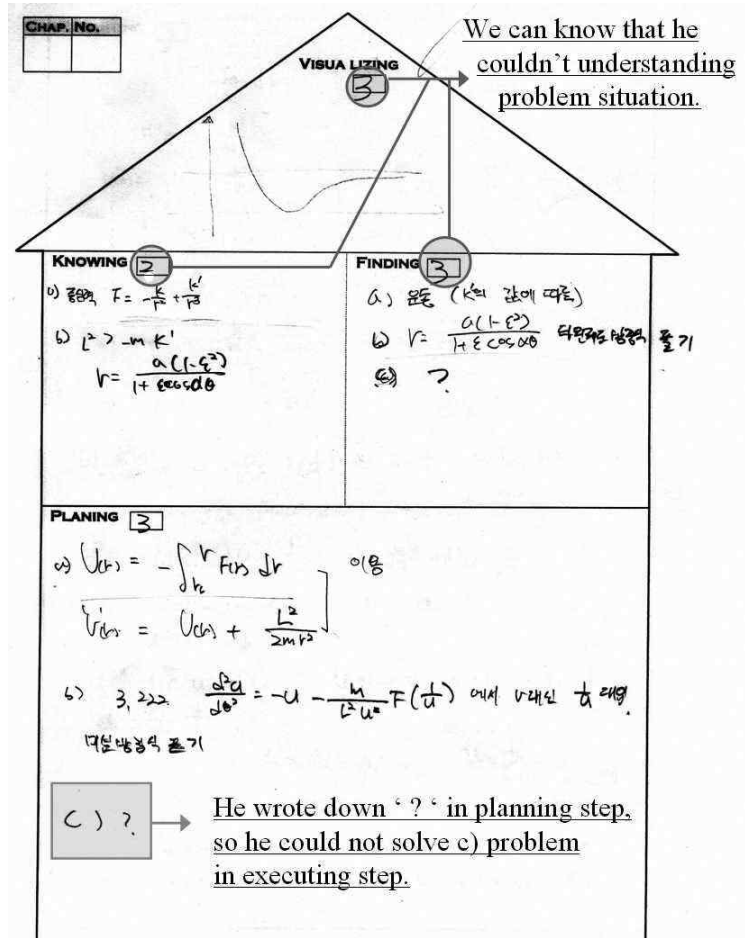 CHAP. NO.
We can know that he
couldn't understanding
problem situation.
VISUALIZING
3
KNOWING 2
a) 중심력 F = -k/r² + k'/r³
b) L² > -mk'
r = a(1-ε²)/(1+εcosαθ)
FINDING 3
a) 운동 (k'의 값에 따른)
b) r = a(1-ε²)/(1+εcosαθ) 타원궤도 방정식 풀기
(c) ?
PLANING 3
a) U(r) = -∫ F(r) dr 이용
U'(r) = U(r) + L²/2mr²
b) 3,222 d²u/dθ² = -u - m/L²u² F(1/u) 에서 r대신 1/u 대입
방정식 풀기
C) ?
He wrote down ‘ ? ‘ in planning step,
so he could not solve c) problem
in executing step.